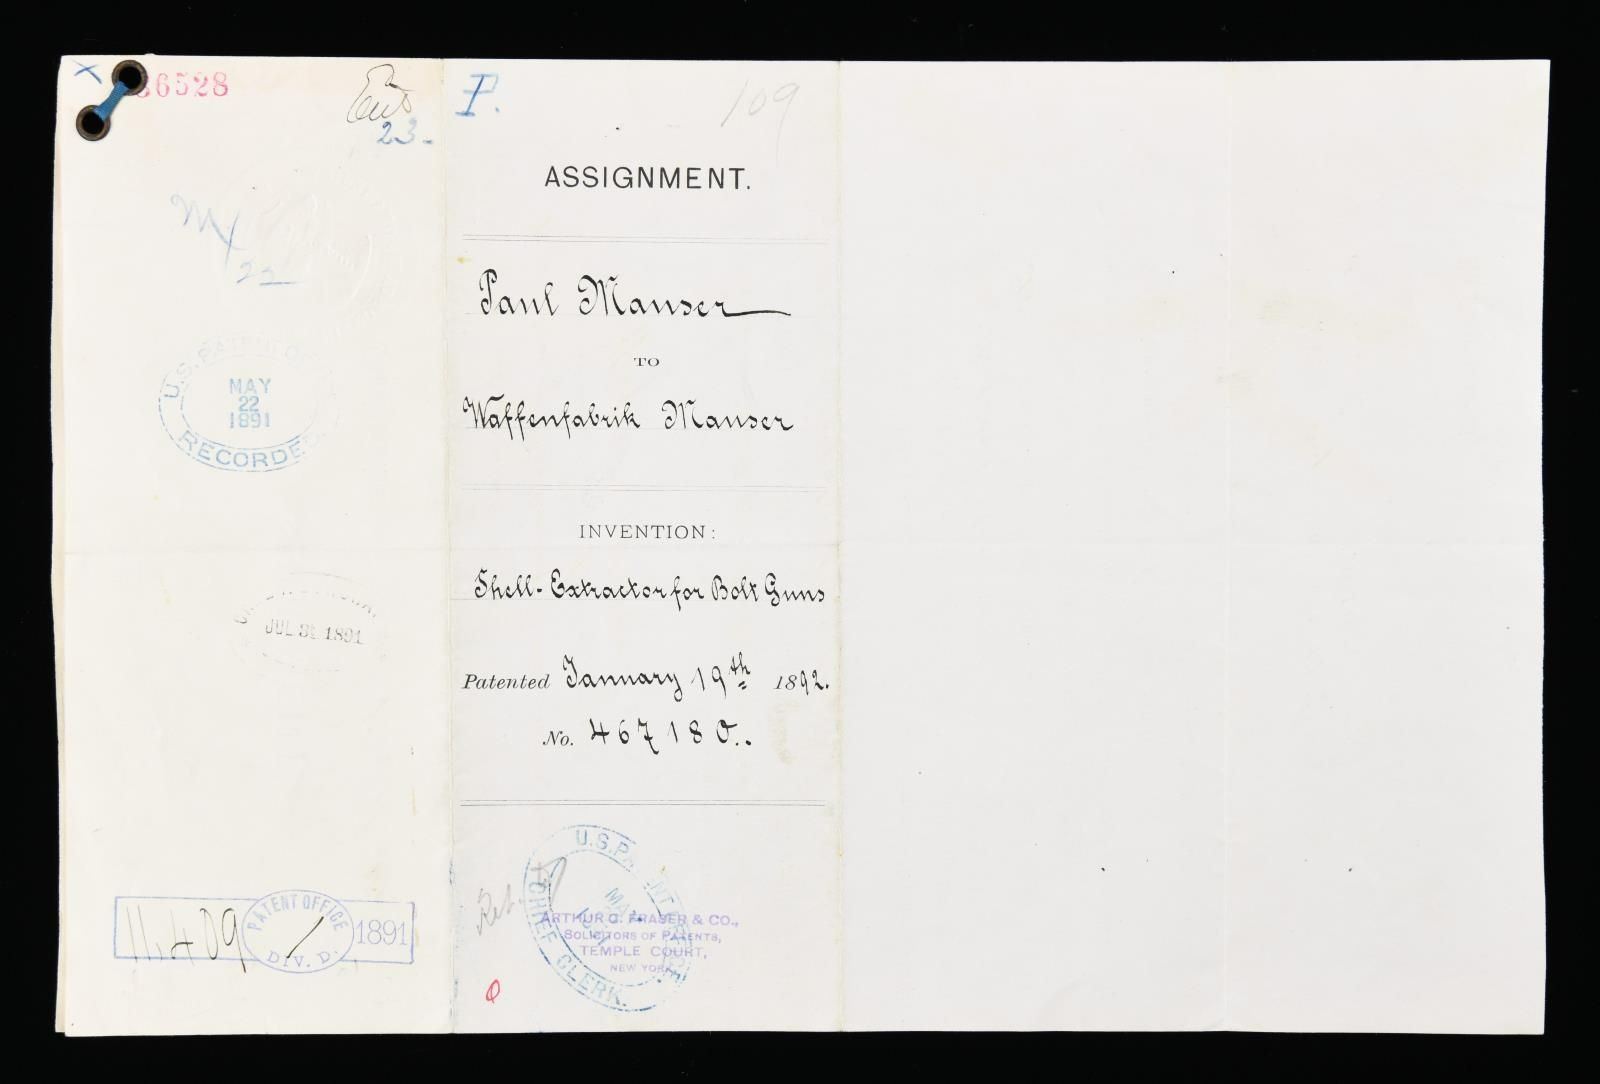 36528
23.
My
22
U.S. PATENT OF
MAY
22
1891
RECORDED.
JUL 31 1891
11,409
PATENT OFFICE
1
DIV. D.
1891
P.
109
ASSIGNMENT.
Paul Mauser
TO
Waffenfabrik Mauser
INVENTION:
Shell-Extractor for Bolt Guns
Patented January 19th 1892.
No. 467180.
U.S. PATENT OFFICE
CHIEF CLERK.
ARTHUR C. FRASER & CO.,
SOLICITORS OF PATENTS,
TEMPLE COURT,
NEW YORK.